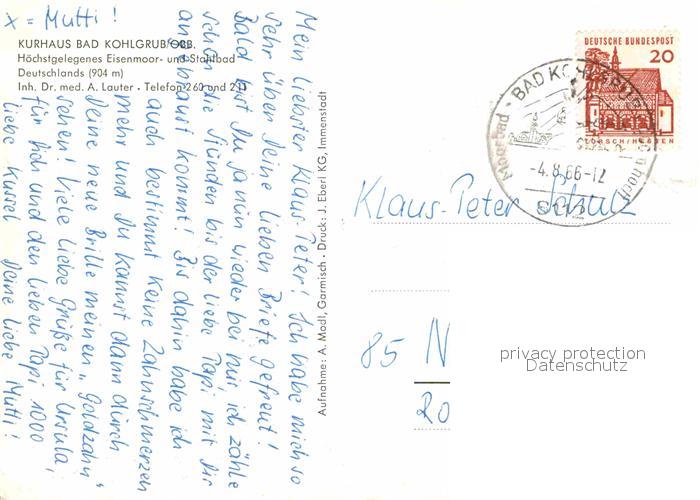 x = Mutti!
KURHAUS BAD KOHLGRUB/OBB.
Höchstgelegenes Eisenmoor- und Stahlbad
Deutschlands (904 m)
Inh. Dr. med. A. Lauter · Telefon 260 und 211
Mein liebster Klaus-Peter! Ich habe mich so
sehr über Deine lieben Briefe gefreut!
Bald bist Du ja nun wieder bei mir, ich zähle
schon die Stunden bis der liebe Papi mit Dir
angebraust kommt! Bis dahin habe ich
auch bestimmt keine Zahnschmerzen
mehr und Du kannst dann durch
Deine neue Brille meinen "Goldzahn"
sehen! Viele liebe Grüße für Ursula,
für Dich und den lieben Papi 1000
liebe Kussel Deine liebe Mutti!
Aufnahme: A. Modl, Garmisch · Druck: J. Eberl KG, Immenstadt
DEUTSCHE BUNDESPOST
20
LORSCH/HESSEN
BAD KOHLGRUB
Moorbad
-4.8.66-12
8112
Klaus-Peter Schulz
85 N
20
privacy protection
Datenschutz